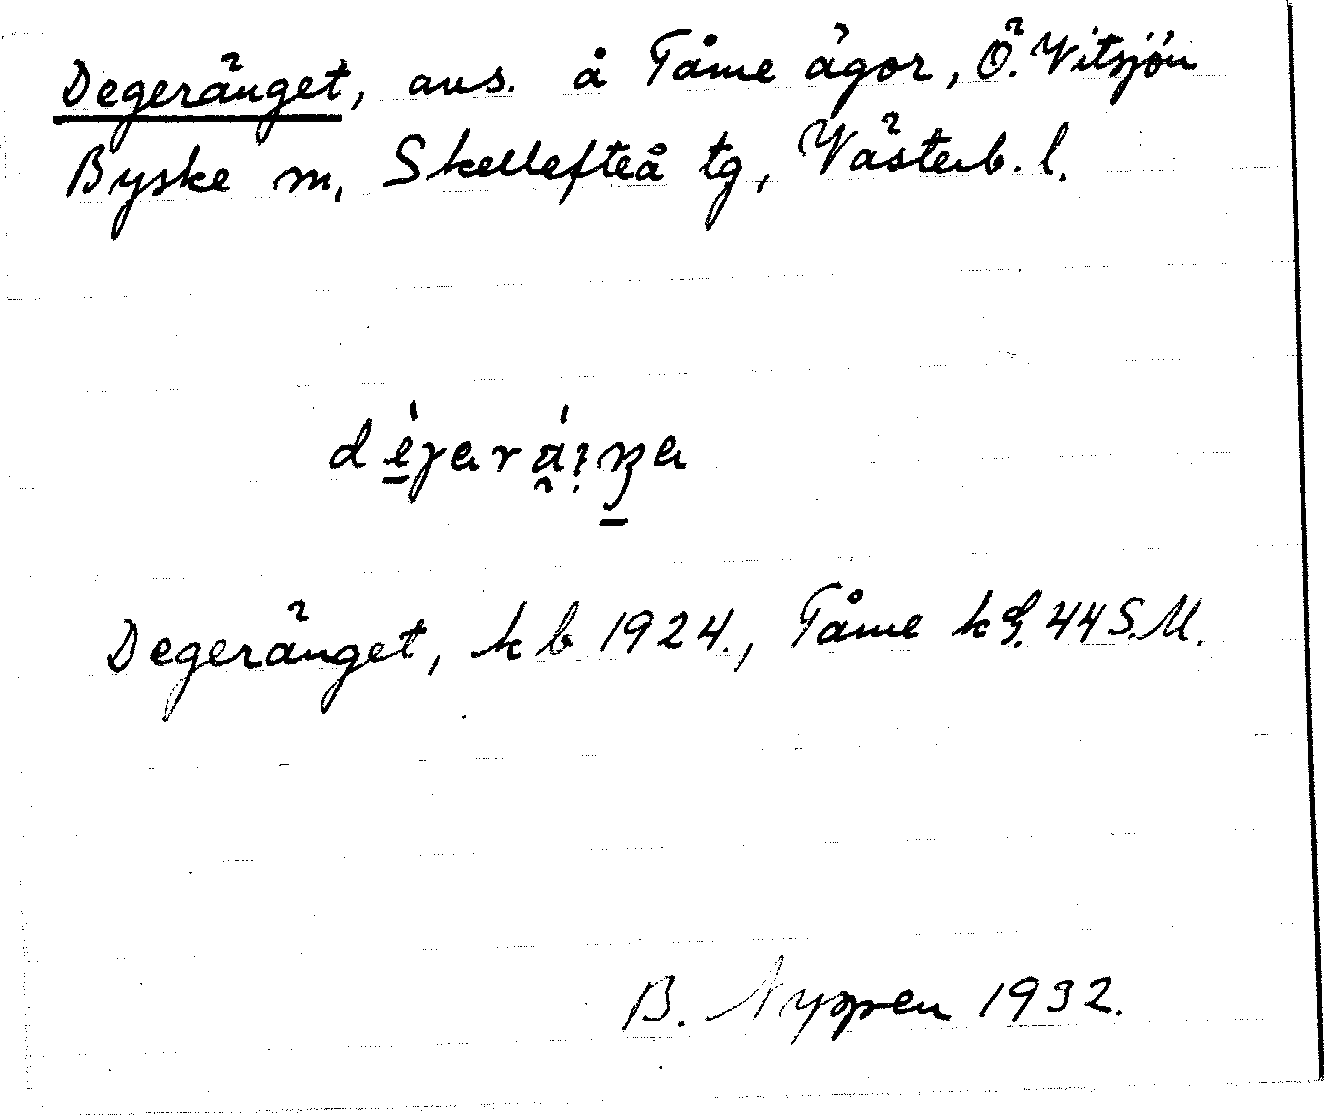 Degeränget, avs. å Tåme ägor, Ö. Vitsjön
Byske sn, Skellefteå tg, Västerb. l.
Degeränget, k b 1924., Tåme 44 S.M.
B. 1932.